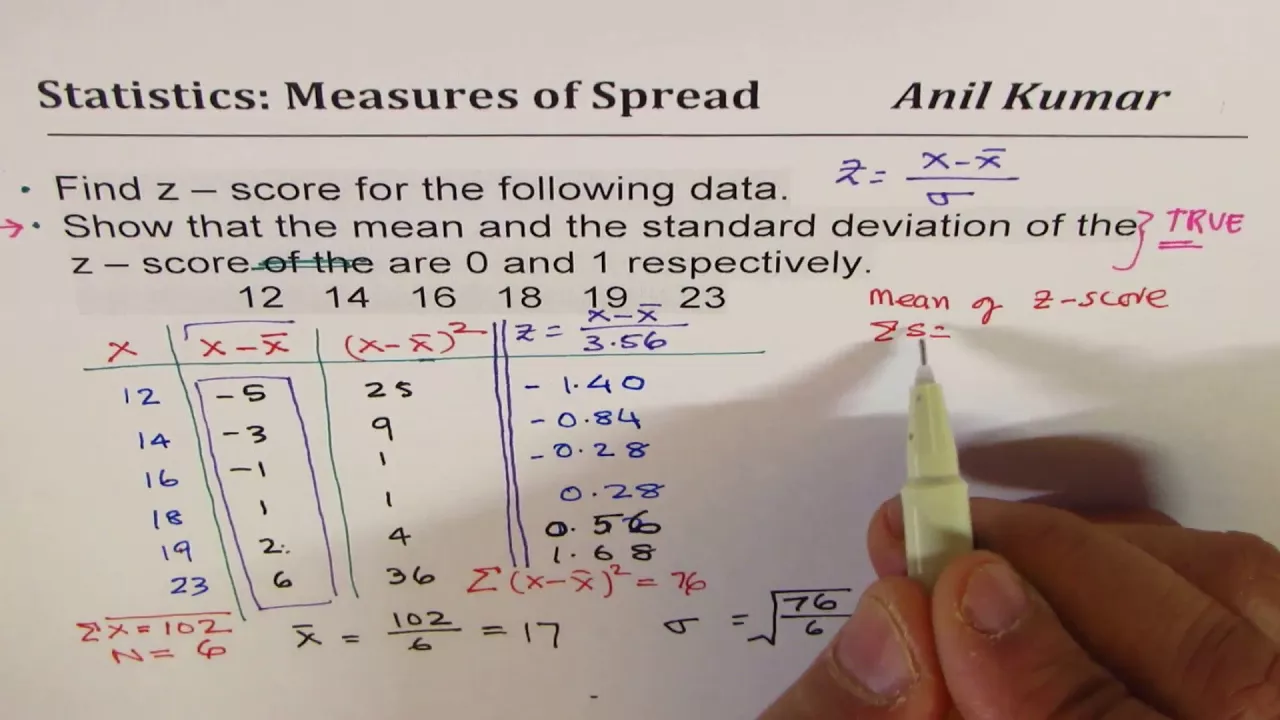 Statistics: Measures of Spread Anil Kumar
• Find z – score for the following data. z = x-x̄ / σ
→ • Show that the mean and the standard deviation of the } TRUE
z – score of the are 0 and 1 respectively.
12 14 16 18 19 23
mean of z-score
Σs=
x | x-x̄ | (x-x̄)² || z = x-x̄ / 3.56
12 -5 25 -1.40
14 -3 9 -0.84
16 -1 1 -0.28
18 1 1 0.28
19 2. 4 0.56
23 6 36 1.68
Σ(x-x̄)² = 76
Σx = 102
N = 6
x̄ = 102/6 = 17
σ = √76/6